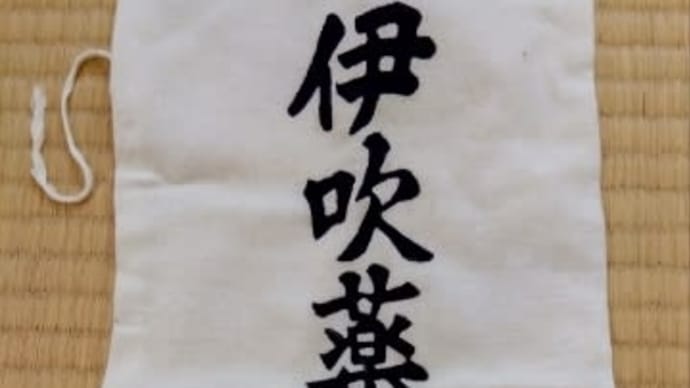 伊吹薬